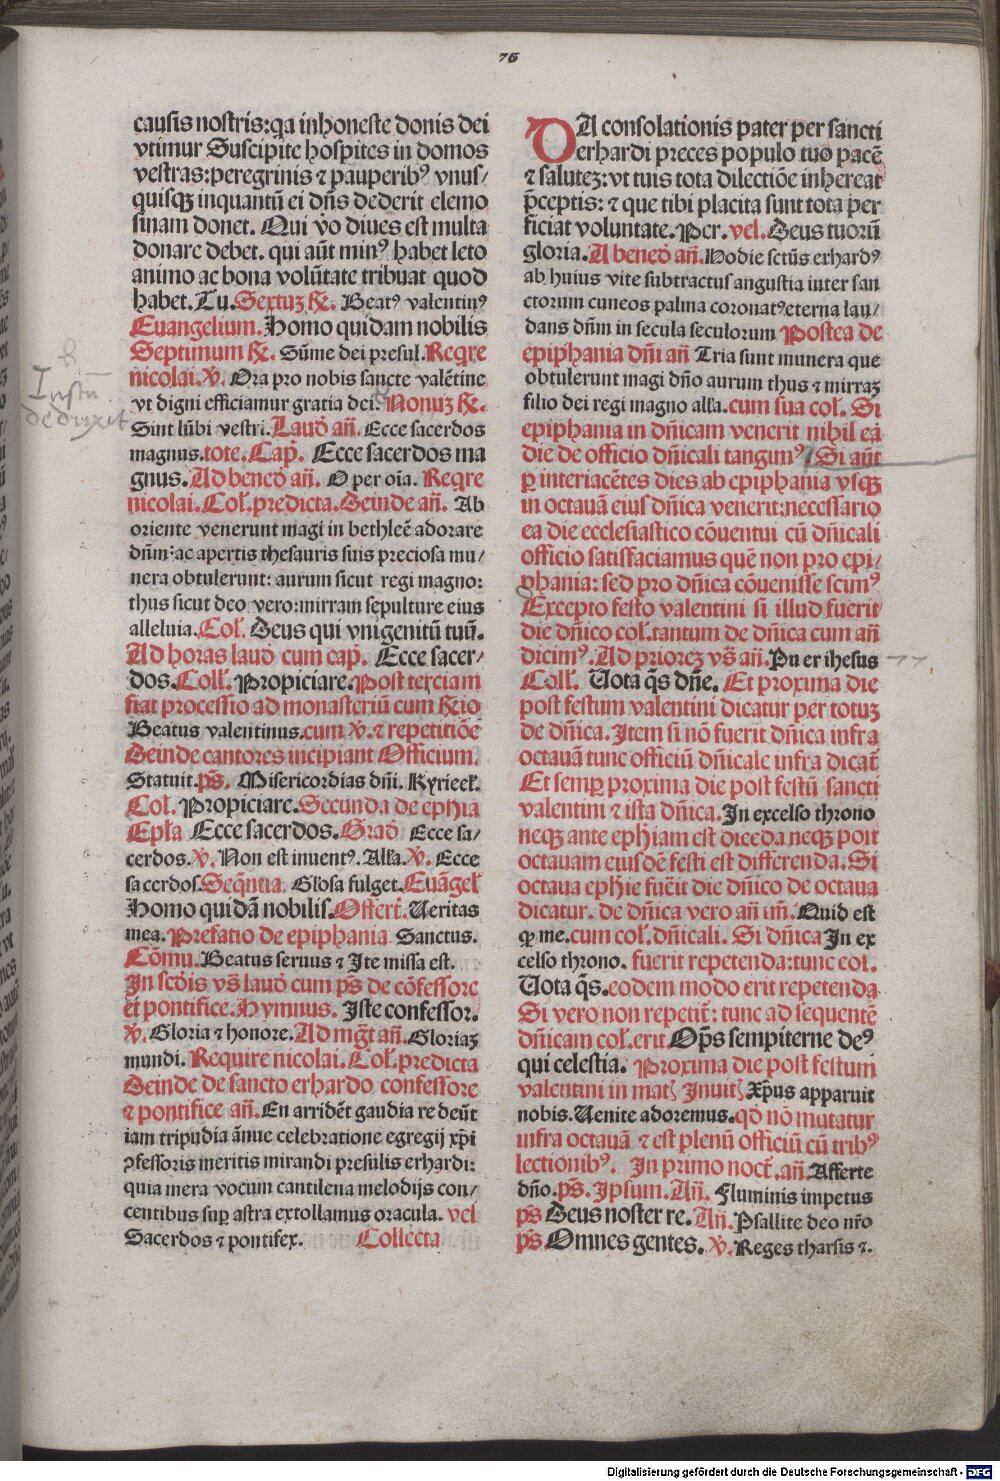 76
causis nostris:q̄a inhoneste donis dei
vtimur Suscipite hospites in domos
vestras:peregrinis ⁊ pauperibꝰ vnus/
quisqꝫ inquantū ei dn̄s dederit elemo
sinam donet. Qui v̄o diues est multa
donare debet. qui aūt minꝰ habet leto
animo ac bona volūtate tribuat quod
habet. Tu. Sextuꝫ R̄. Beatꝰ valentinꝰ
Euangelium. Homo quidam nobilis
Septimum R̄. Sūme dei presul. Reqre
nicolai. V̄. Ora pro nobis sancte valētine
vt digni efficiamur gratia dei. Nonuꝫ R̄.
Sint lūbi vestri. Laud̄ an̄. Ecce sacerdos
magnus. tote. Cap̄. Ecce sacerdos ma
gnus. Ad bened̄ an̄. O per oīa. Reqre
nicolai. Col̄. predicta. Deinde an̄. Ab
oriente venerunt magi in bethleē adorare
dn̄m:ac apertis thesauris suis preciosa mu/
nera obtulerunt: aurum sicut regi magno:
thus sicut deo vero:mirram sepulture eius
alleluia. Col̄. Deus qui vnigenitū tuū.
Ad horas laud̄ cum cap̄. Ecce sacer/
dos. Coll̄. Propiciare. Post terciam
fiat processio ad monasteriū cum R̄io
Beatus valentinus. cum V̄. ⁊ repetitiōe
Deinde cantores incipiant Officium.
Statuit. ps̄. Misericordias dn̄i. Kyrieel̄.
Col̄. Propiciare. Secunda de ephia
Epl̄a Ecce sacerdos. Grad̄ Ecce sa/
cerdos. V̄. Non est inuentꝰ. All̄a. V̄. Ecce
sacerdos. Seq̄ntia. Gl̄osa fulget. Euāgel̄
Homo quidā nobilis. Offert̄. Ueritas
mea. Prefatio de epiphania Sanctus.
Cōmu. Beatus seruus ⁊ Ite missa est.
In scd̄is vs̄ laud̄ cum ps̄ de cōfessore
et pontifice. Hymnus. Iste confessor.
V̄. Gloria ⁊ honore. Ad mḡt an̄. Gloriaꝫ
mundi. Require nicolai. Col̄. predicta
Deinde de sancto erhardo confessore
⁊ pontifice an̄. En arridēt gaudia re deūt
iam tripudia ānue celebratione egregij xp̄i
ꝯfessoris meritis mirandi presulis erhardi:
quia mera vocum cantilena melodijs con/
centibus sup̄ astra extollamus oracula. vel
Sacerdos ⁊ pontifex. Collecta
DA consolationis pater per sancti
erhardi preces populo tuo pacē
⁊ saluteꝫ:vt tuis tota dilectiōe inhereat
p̄ceptis: ⁊ que tibi placita sunt tota per
ficiat voluntate. Per. vel. Deus tuorū
gloria. A bened̄ an̄. Hodie sctūs erhardꝰ
ab huius vite subtractus angustia inter san
ctorum cuneos palma coronatꝰ eterna lau/
dans dn̄m in secula seculorum Postea de
epiphania dn̄i an̄ Tria sunt munera que
obtulerunt magi dn̄o aurum thus ⁊ mirraꝫ
filio dei regi magno all̄a. cum sua col̄. Si
epiphania in dn̄icam venerit nihil ea
die de officio dn̄icali tangimꝰ Si aūt
ꝑ interiacētes dies ab epiphania vsqꝫ
in octauā eius dn̄ica venerit:necessario
ea die ecclesiastico cōuentui cū dn̄icali
officio satisfaciamus quē non pro epi/
phania: sed pro dn̄ica cōuenisse scimꝰ
Excepto festo valentini si illud fuerit
die dn̄ico col̄. tantum de dn̄ica cum an̄
dicimꝰ. Ad priorem vs̄ an̄. Pu er ihesus
Coll̄. Uota q̄s dn̄e. Et proxima die
post festum valentini dicatur per totuꝫ
de dn̄ica. Item si nō fuerit dn̄ica infra
octauā tunc officiū dn̄icale infra dicat̄
Et semꝑ proxima die post festū sancti
valentini ⁊ ista dn̄ica. In excelso throno
neqꝫ ante ephiam est dicēda neqꝫ post
octauam eiusdē festi est differenda. Si
octaua ephie fuēit die dn̄ico de octaua
dicatur. de dn̄ica vero an̄ im̄. Quid est
ꝙ me. cum col̄. dn̄icali. Si dn̄ica In ex
celso throno. fuerit repetenda:tunc col.
Uota q̄s. eodem modo erit repetenda
Si vero non repetit̄: tunc ad sequentē
dn̄icam col̄. erit Op̄s sempiterne deꝰ
qui celestia. Proxima die post festum
valentini in mat̄ Inuit̄ Xp̄us apparuit
nobis. Uenite adoremus. qd̄ nō mutatur
infra octauā ⁊ est plenū officiū cū tribꝰ
lectionibꝰ. In primo noct̄. an̄. Afferte
dn̄o. ps̄. Ipsum. An̄. Fluminis impetus
ps̄ Deus noster re. An̄. Psallite deo nr̄o
ps̄ Omnes gentes. V̄. Reges tharsis ⁊.
Digitalisierung gefördert durch die Deutsche Forschungsgemeinschaft - DFG